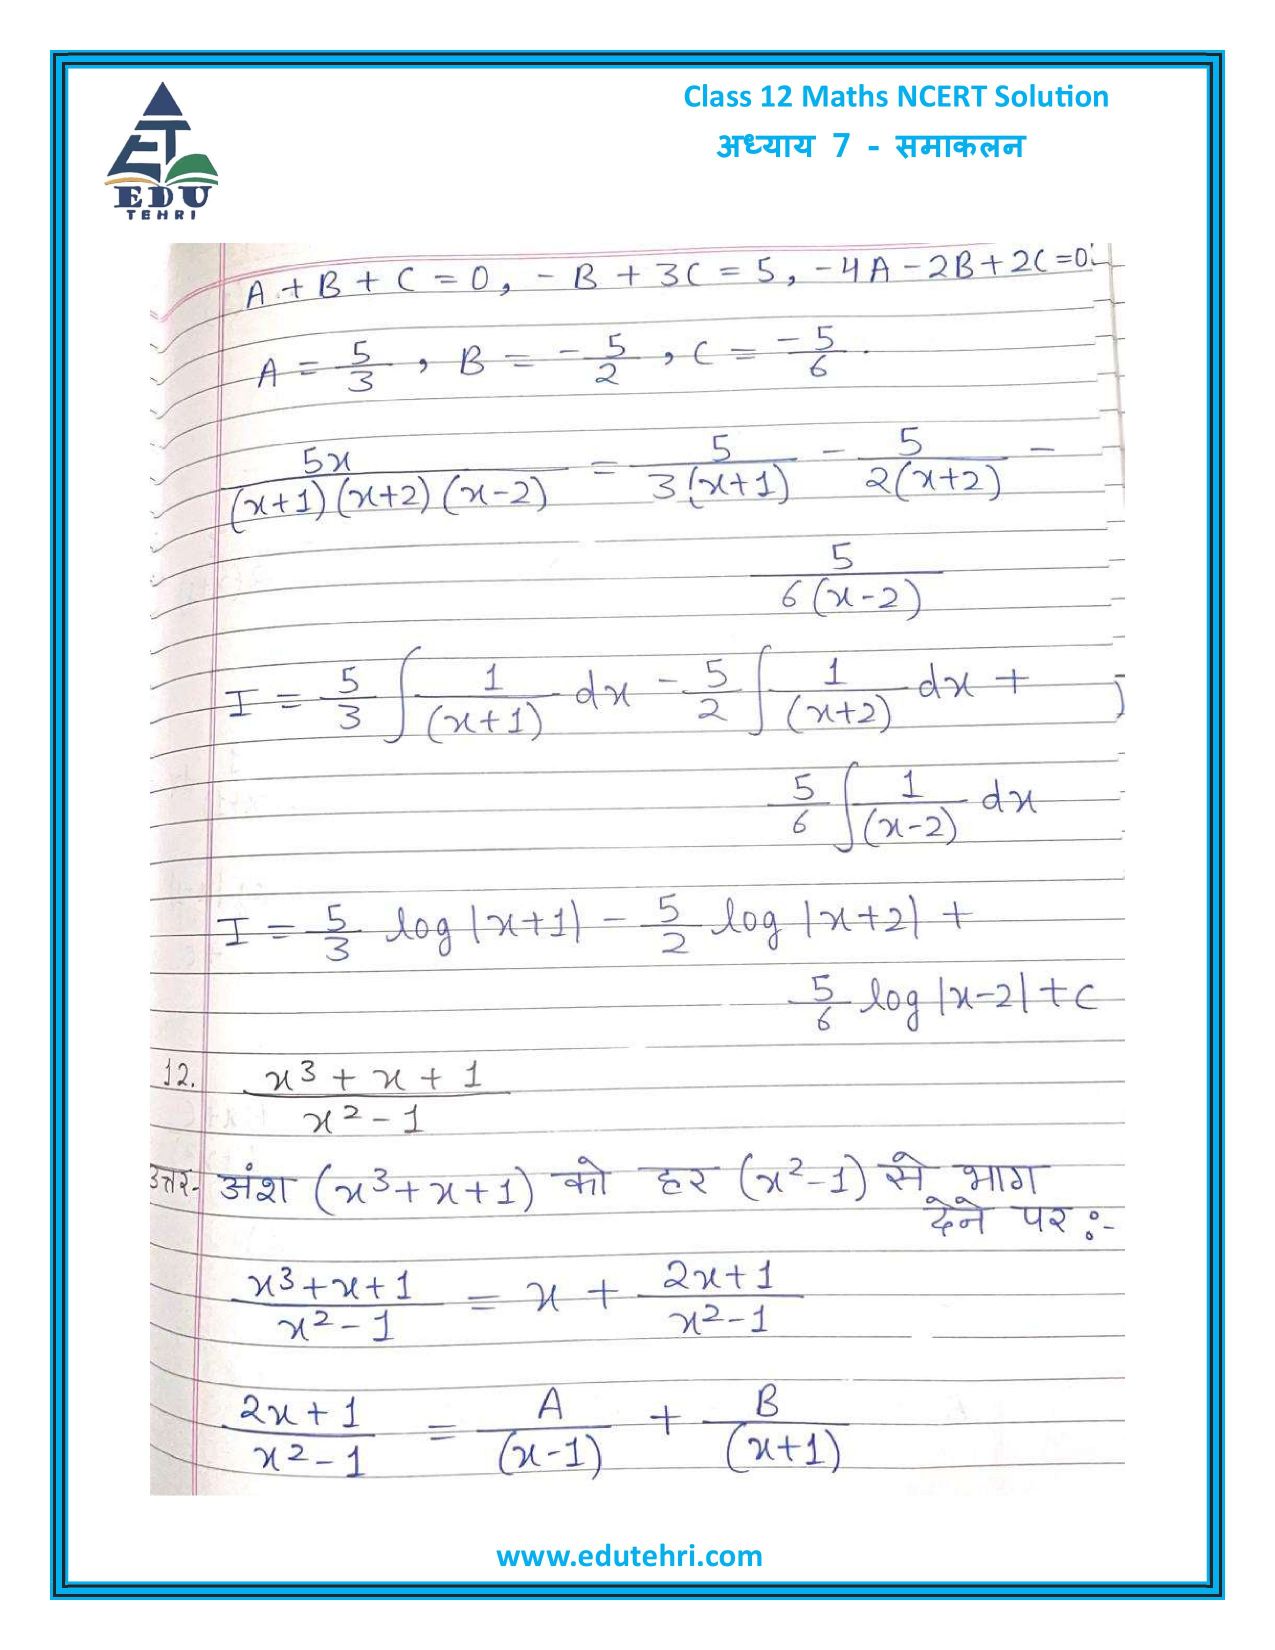 Class 12 Maths NCERT Solution
अध्याय 7 - समाकलन
ET
EDU
TEHRI
A + B + C = 0, - B + 3C = 5, - 4A - 2B + 2C = 0
A = 5/3 , B = - 5/2 , C = - 5/6
5x/((x+1)(x+2)(x-2)) = 5/(3(x+1)) - 5/(2(x+2)) -
5/(6(x-2))
I = 5/3 ∫ 1/(x+1) dx - 5/2 ∫ 1/(x+2) dx +
5/6 ∫ 1/(x-2) dx
I = 5/3 log|x+1| - 5/2 log|x+2| +
5/6 log|x-2| + c
12. (x³ + x + 1)/(x² - 1)
उत्तर- अंश (x³+x+1) को हर (x²-1) से भाग
देने पर :-
(x³+x+1)/(x²-1) = x + (2x+1)/(x²-1)
(2x+1)/(x²-1) = A/(x-1) + B/(x+1)
www.edutehri.com